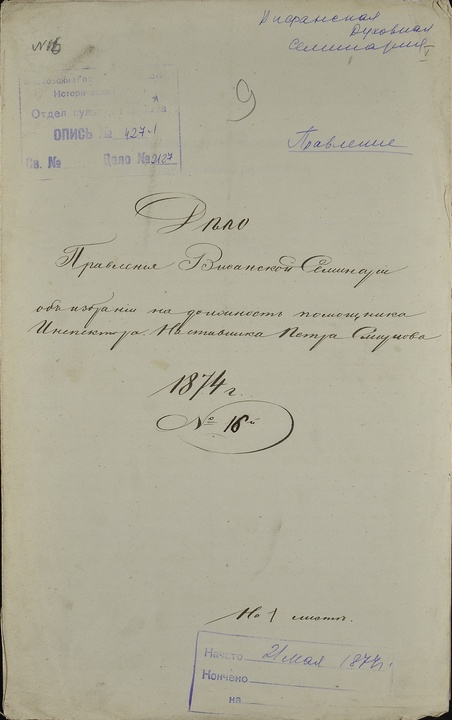 №16
Вифанская
Духовная
Семинария
Историчес
Отдел культ
ОПИСЬ № 427.1
Св. № Дело № 2127
9
Правление
Дѣло
Правленія Виѳанской Семинаріи
объ избраніи на должность помощника
Инспектора. Наставника Петра Смирнова
1874 г.
№ 16й
На 1 листѣ.
Начато 21 мая 1874 г.
Кончено
на